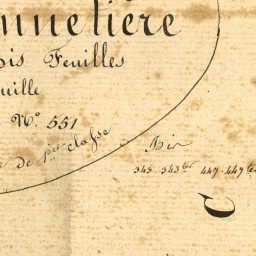 nnetière
ois Feuilles
uille
N.º 551
de p.re classe
Bis
345. 343.ter 447. 447.te
C